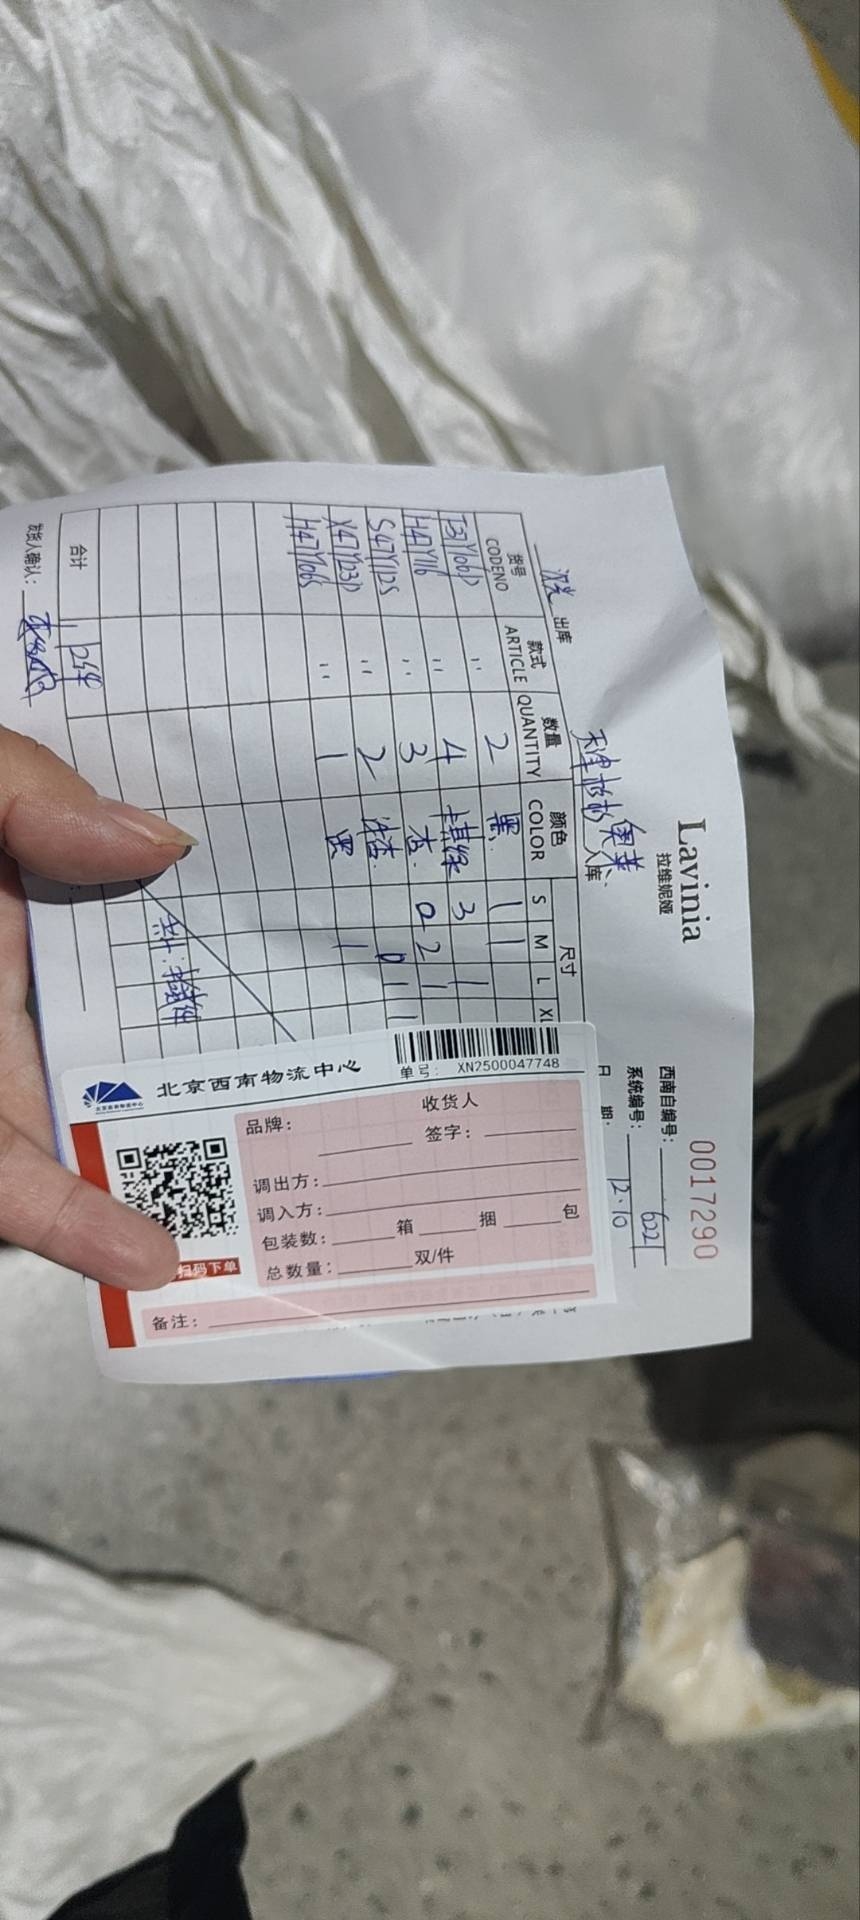 Lavinia
拉维妮娅
0017290
西南自编号：
系统编号： 6221
日 期： 12.10
出库 天津杉杉奥莱 入库
货号 CODENO 款式 ARTICLE 数量 QUANTITY 颜色 COLOR 尺寸 S M L XL
" 2 黑 1 1
H47Y116 " 4 3 1
S47Y112S " 3 杏 0 2 1
X47Y23D " 2 0 1 1
H47Y06S " 1 黑 1
合计 12件
发货人确认：
北京西南物流中心
单号： XN2500047748
收货人
品牌： 签字：
调出方：
调入方：
包装数： 箱 捆 包
总数量： 双/件
扫码下单
备注：